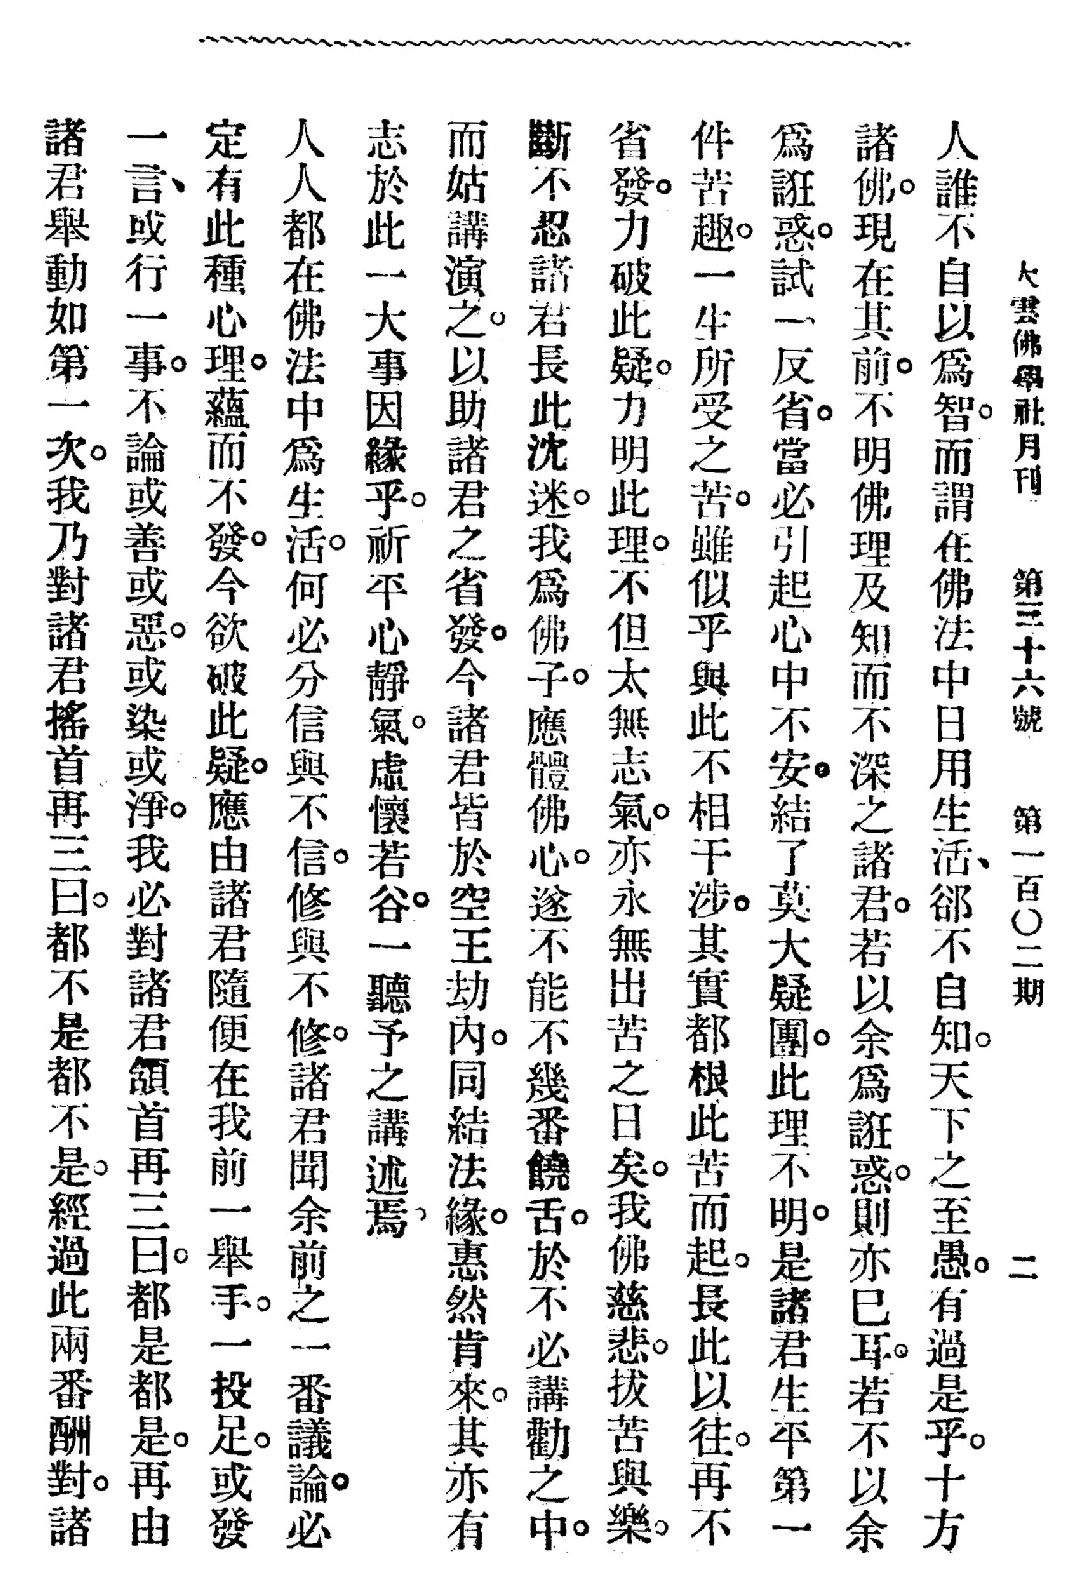 大雲佛學社月刊 第三十六號 第一百〇二期 二
人誰不自以爲智。而謂在佛法中日用生活、郤不自知。天下之至愚。有過是乎。十方
諸佛。現在其前。不明佛理及知而不深之諸君。若以余爲誑惑。則亦已耳。若不以余
爲誑惑。試一反省。當必引起心中不安。結了莫大疑團。此理不明。是諸君生平第一
件苦趣。一生所受之苦。雖似乎與此不相干涉。其實都根此苦而起。長此以往。再不
省發。力破此疑。力明此理。不但太無志氣。亦永無出苦之日矣。我佛慈悲。拔苦與樂。
斷不忍諸君長此沈迷。我爲佛子。應體佛心。遂不能不幾番饒舌。於不必講勸之中。
而姑講演之。以助諸君之省發。今諸君皆於空王劫內。同結法緣。惠然肯來。其亦有
志於此一大事因緣乎。祈平心靜氣。虛懷若谷。一聽予之講述焉。
人人都在佛法中爲生活。何必分信與不信。修與不修。諸君聞余前之一番議論。必
定有此種心理。蘊而不發。今欲破此疑。應由諸君隨便在我前一舉手。一投足。或發
一言、或行一事。不論或善或惡。或染或淨。我必對諸君頷首再三曰。都是都是。再由
諸君舉動如第一次。我乃對諸君搖首再三曰。都不是都不是。經過此兩番酬對。諸